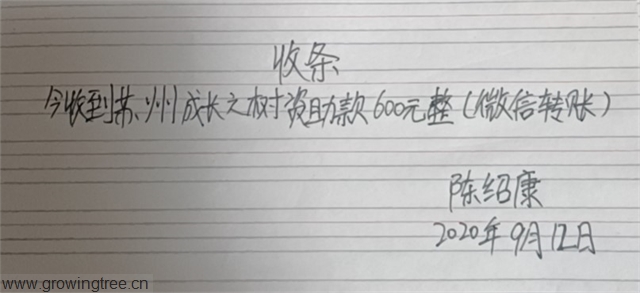 收条
今收到苏州成长之树资助款600元整(微信转账)
陈绍康
2020年9月12日
www.growingtree.cn